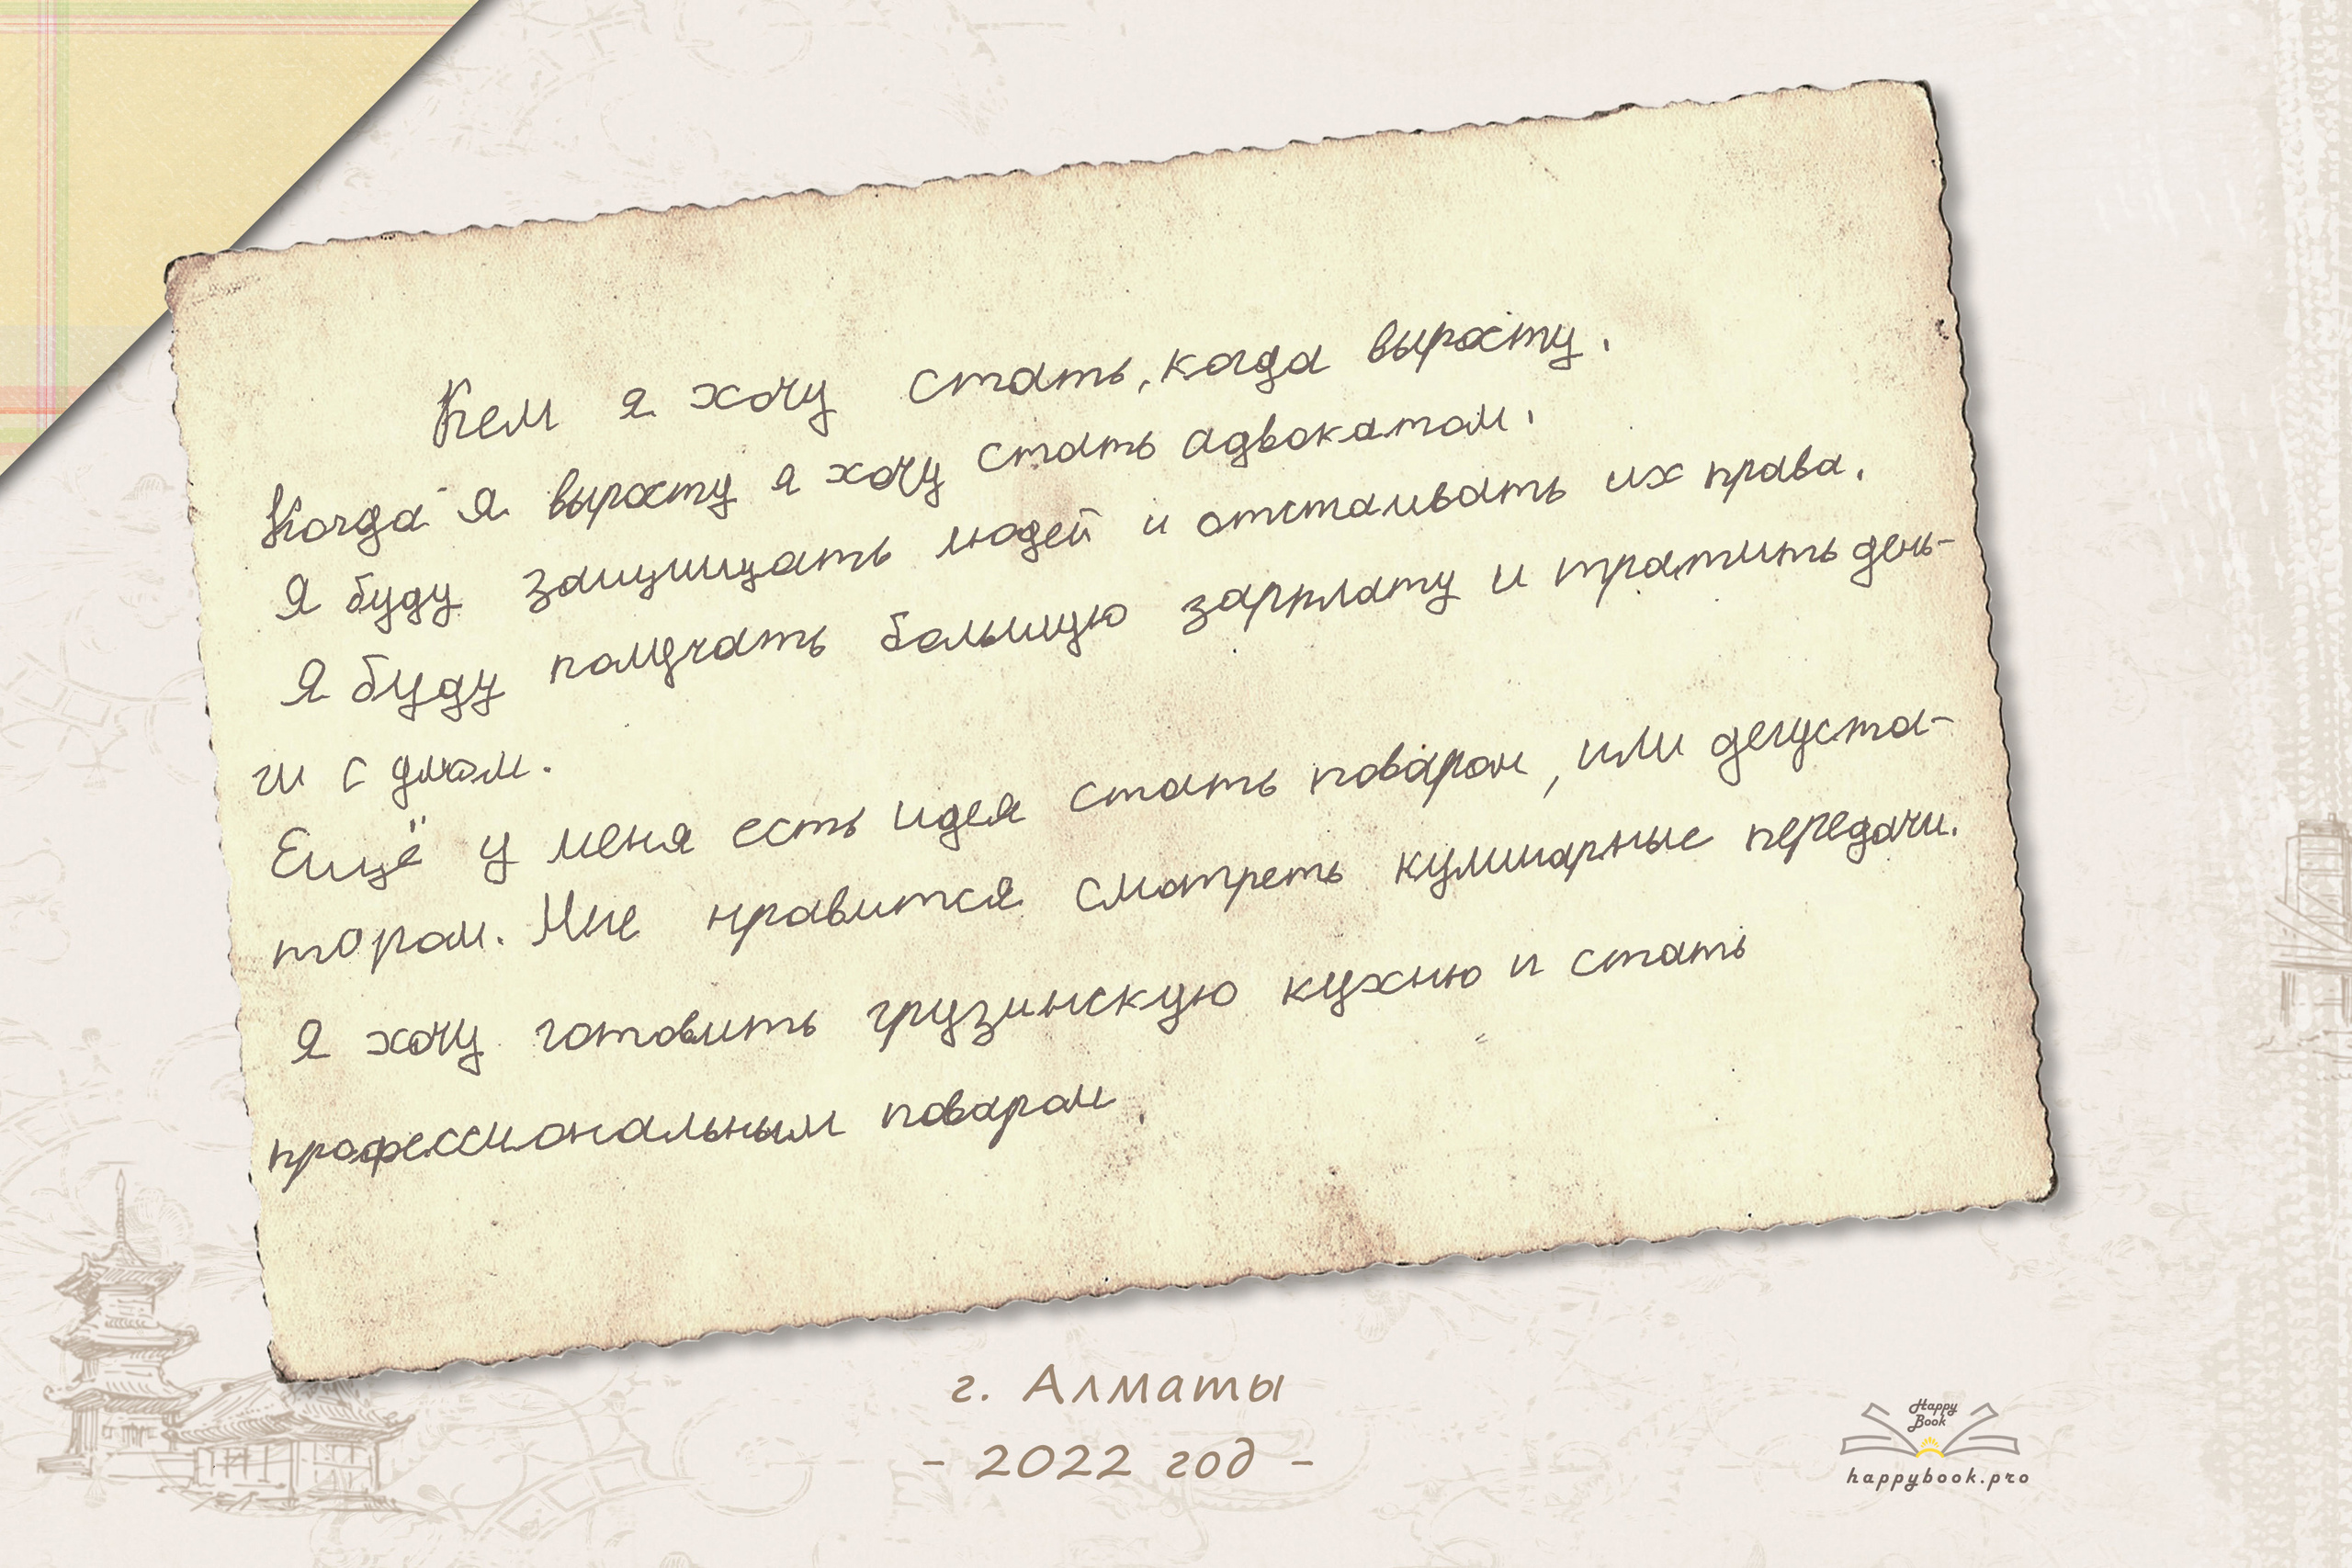 Кем я хочу стать, когда вырасту.
Когда я вырасту я хочу стать адвокатом.
Я буду защищать людей и отстаивать их права.
Я буду получать большую зарплату и тратить день-
ги с умом.
Ещё у меня есть идея стать поваром, или дегуста-
тором. Мне нравится смотреть кулинарные передачи.
Я хочу готовить грузинскую кухню и стать
профессиональным поваром.
г. Алматы
- 2022 год -
Happy
Book
happybook.pro